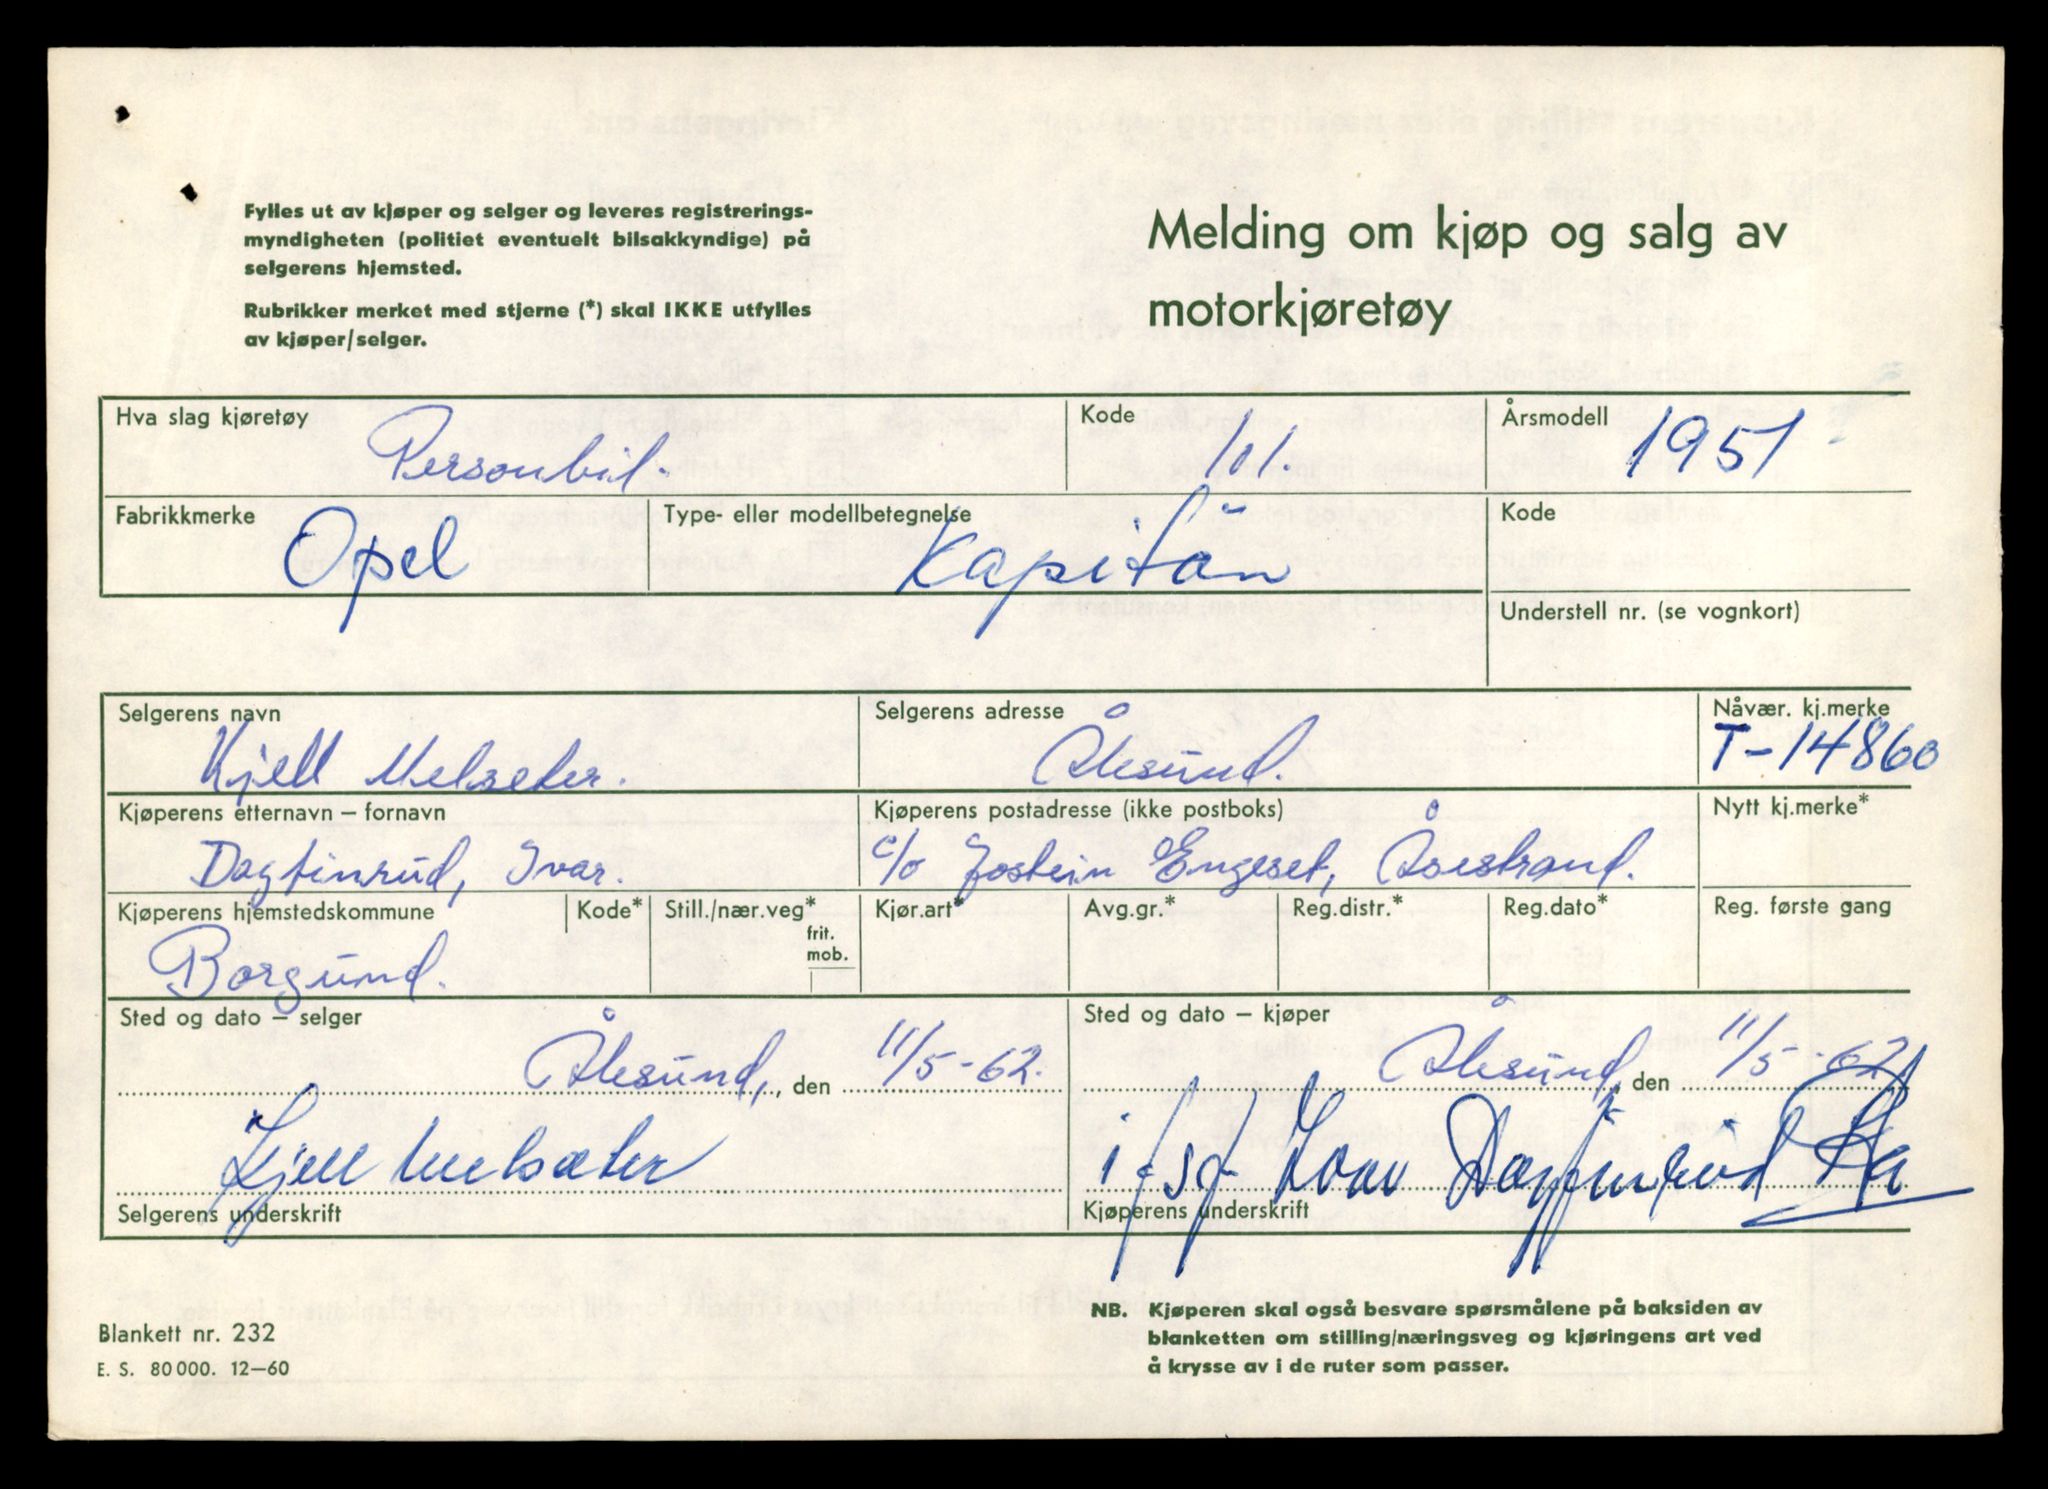 Fylles ut av kjøper og selger og leveres registrerings-
myndigheten (politiet eventuelt bilsakkyndige) på
selgerens hjemsted.
Rubrikker merket med stjerne (*) skal IKKE utfylles
av kjøper/selger.
Melding om kjøp og salg av
motorkjøretøy
Hva slag kjøretøy Kode Årsmodell
Personbil. 101. 1951
Fabrikkmerke Type- eller modellbetegnelse Kode
Opel Kapitän
Understell nr. (se vognkort)
Selgerens navn Selgerens adresse Nåvær. kj.merke
Kjell Melseter. Ålesund. T-14860
Kjøperens etternavn – fornavn Kjøperens postadresse (ikke postboks) Nytt kj.merke*
Dagfinrud, Ivar. c/o Jostein Engeset, Åsestrand.
Kjøperens hjemstedskommune Kode* Still./nær.veg* Kjør.art* Avg.gr.* Reg.distr.* Reg.dato* Reg. første gang
frit.
mob.
Borgund.
Sted og dato – selger Sted og dato – kjøper
Ålesund, den 11/5-62. Ålesund, den 11/5-62
Kjell Melsæter Ivar Dagfinrud
Selgerens underskrift Kjøperens underskrift
NB. Kjøperen skal også besvare spørsmålene på baksiden av
blanketten om stilling/næringsveg og kjøringens art ved
å krysse av i de ruter som passer.
Blankett nr. 232
E. S. 80 000. 12–60